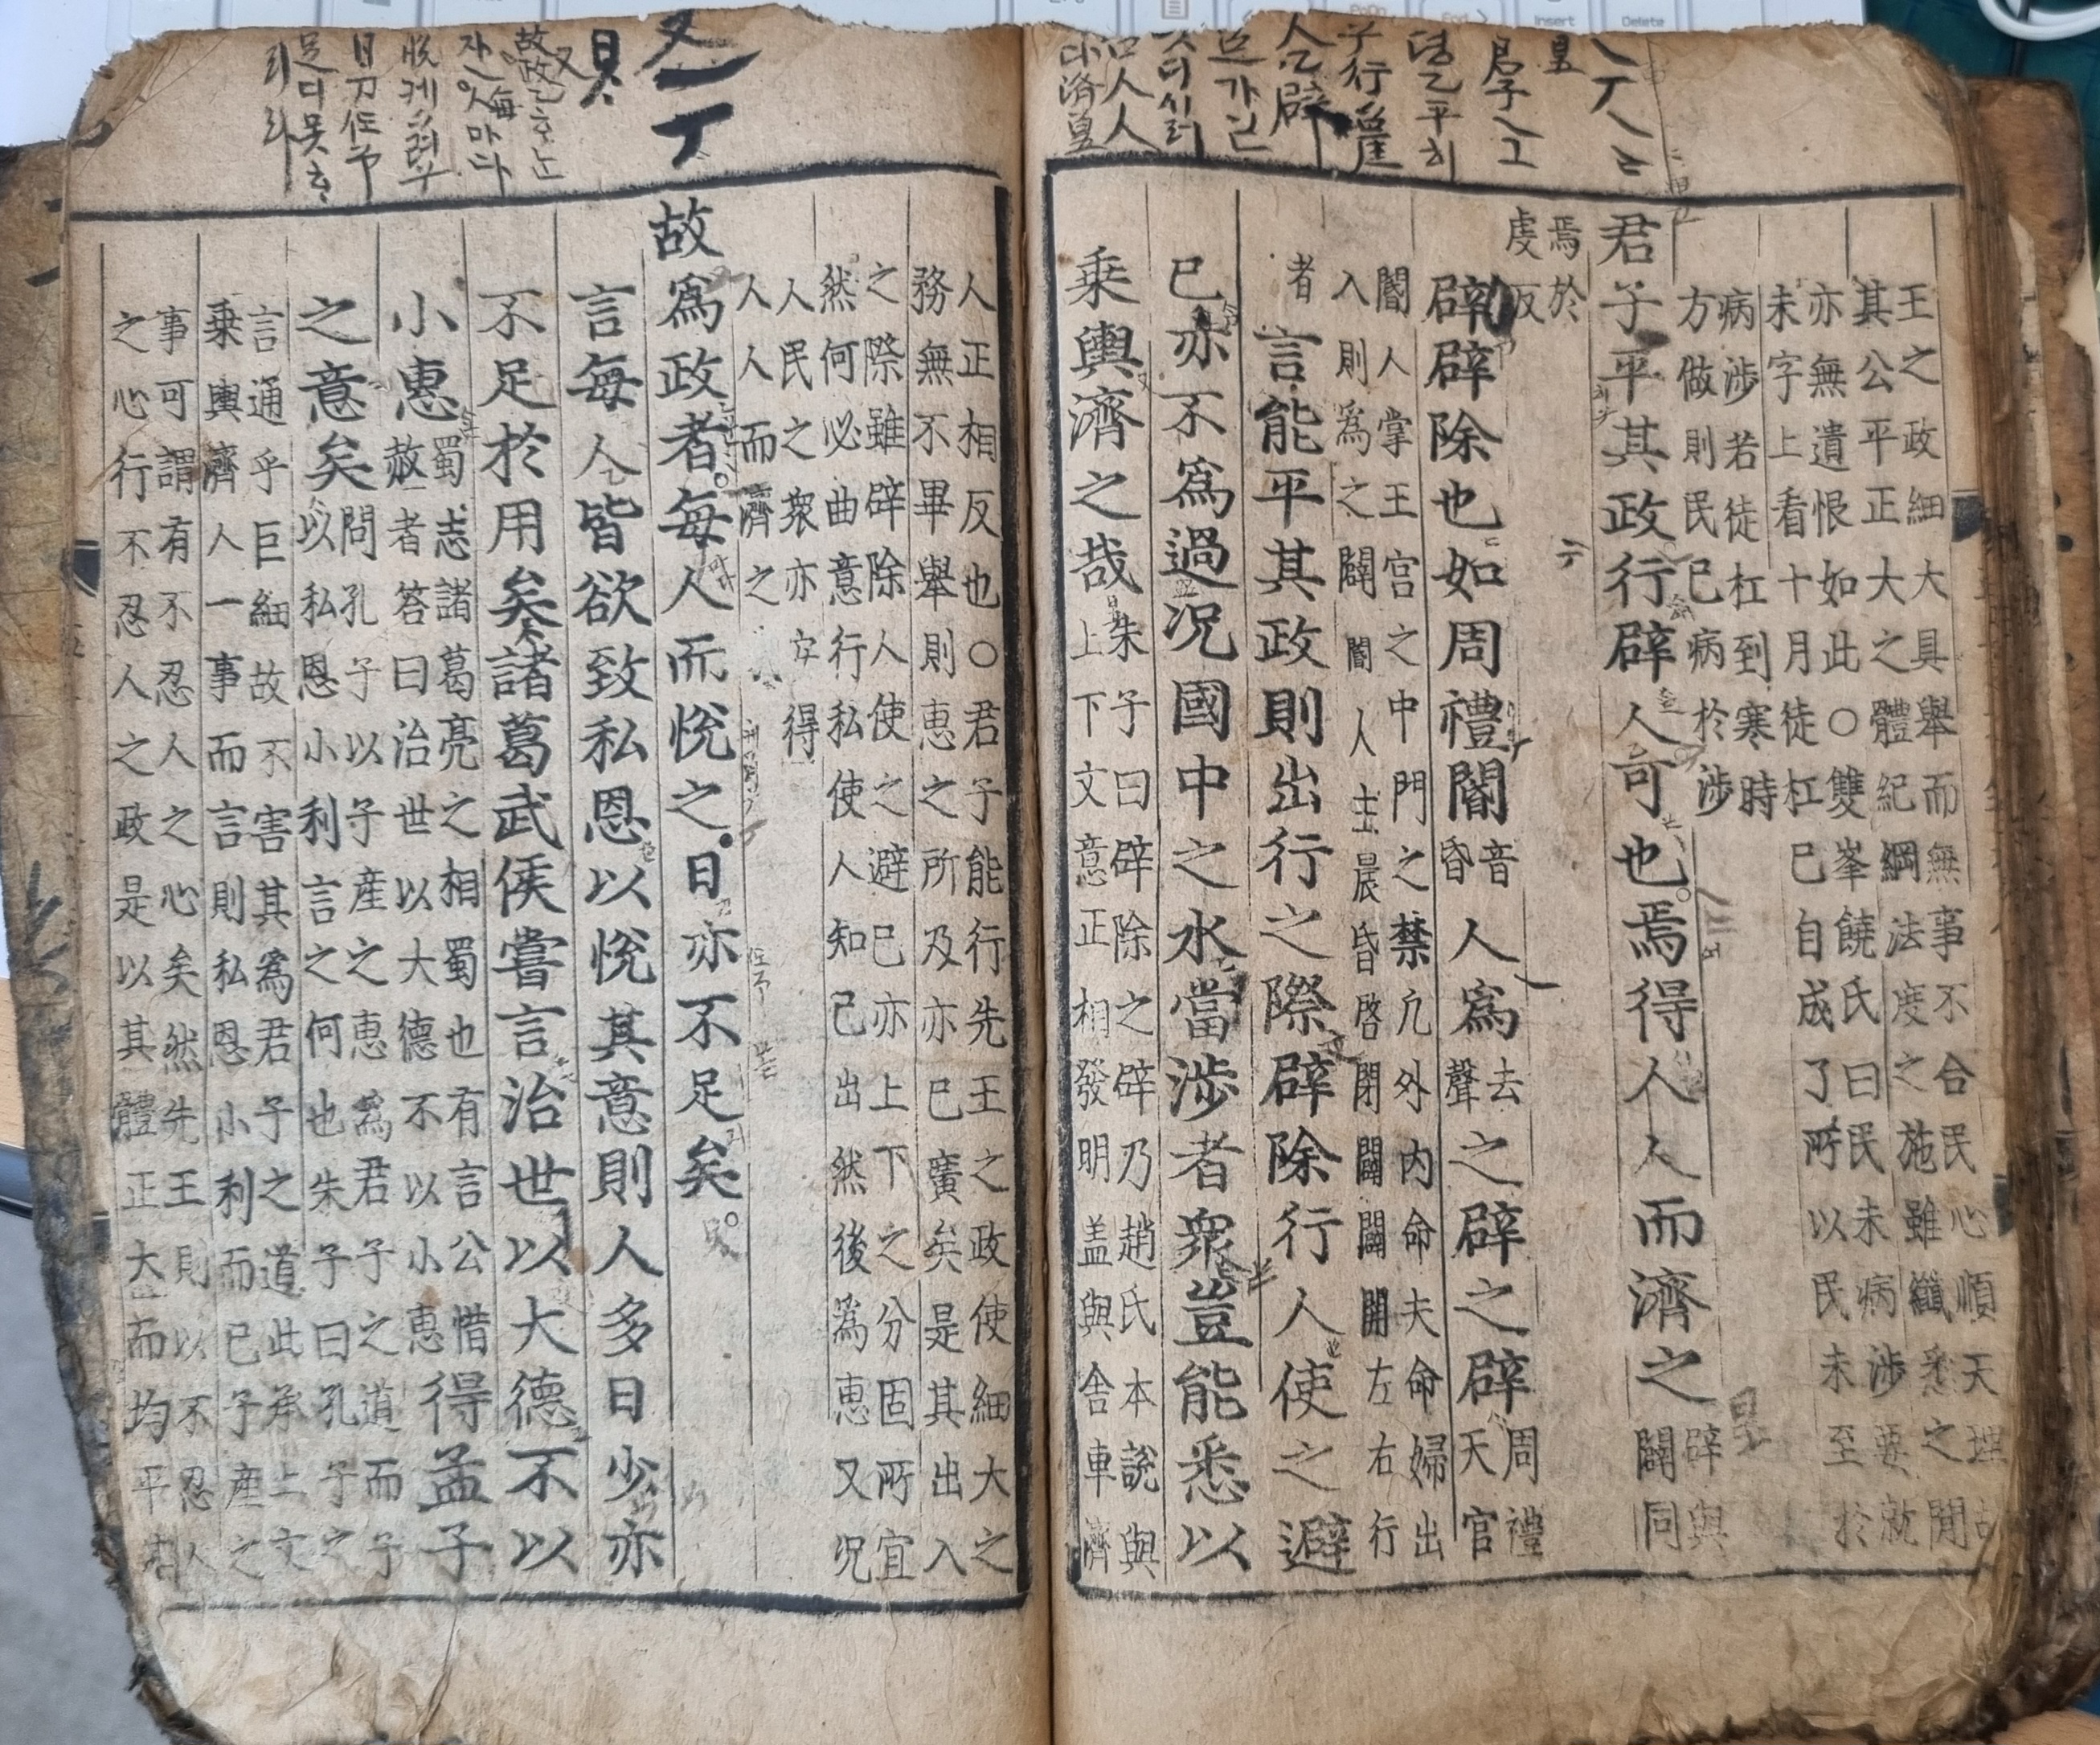 王之政細大具舉而無事不合民心順天理故
其公平正大之體紀綱法度之施雖纖悉之間
亦無遺恨如此○雙峯饒氏曰民未病涉要就
未字上看十月徒杠已自成了所以民未至於
病涉若徒杠到寒時
方做則民已病於涉
君子平其政行辟人可也焉得人人而濟之
辟與
闢同
焉於
虔反
辟辟除也如周禮閽音昏人爲去聲之辟之辟
周禮
天官
閽人掌王宮之中門之禁凡外內命夫命婦出
入則爲之闢閽人主晨昏啓閉闢闢開左右行
者
言能平其政則出行之際辟除行人使之避
已亦不爲過况國中之水當涉者衆豈能悉以
乗輿濟之哉
朱子曰辟除之辟乃趙氏本說與
上下文意正相發明盖與舍車濟
人正相反也○君子能行先王之政使細大之
務無不畢舉則惠之所及亦已廣矣是其出入
之際雖辟除人使之避已亦上下之分固所宜
然何必曲意行私使人知己出然後爲惠又况
人民之衆亦安得
人人而濟之
故爲政者每人而悅之日亦不足矣
言每人皆欲致私恩以悅其意則人多日少亦
不足於用矣諸葛武侯嘗言治世以大德不以
小惠
蜀志諸葛亮之相蜀也有言公惜
赦者答曰治世以大德不以小惠
得孟子
之意矣
問孔子以子產之惠爲君子之道而子
以私恩小利言之何也朱子曰孔子之
言通乎巨細故不害其爲君子之道此承上文
乗輿濟人一事而言則私恩小利而已子產之
事可謂有不忍人之心矣然先王則以不忍人
之心行不忍人之政是以其體正大而均平